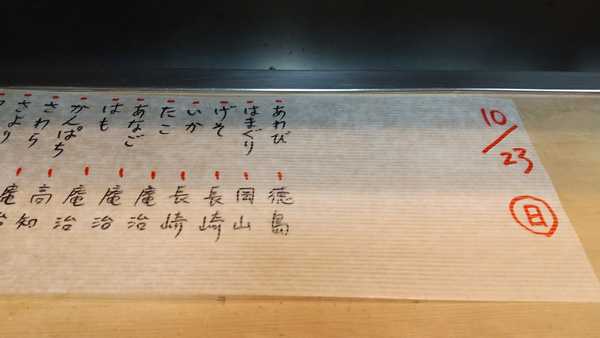 10/23
日
あわび 徳島
はまぐり 岡山
げそ 長崎
いか 長崎
たこ 庵治
あなご 庵治
はも 庵治
かんぱち 高知
さわら 庵治
さより